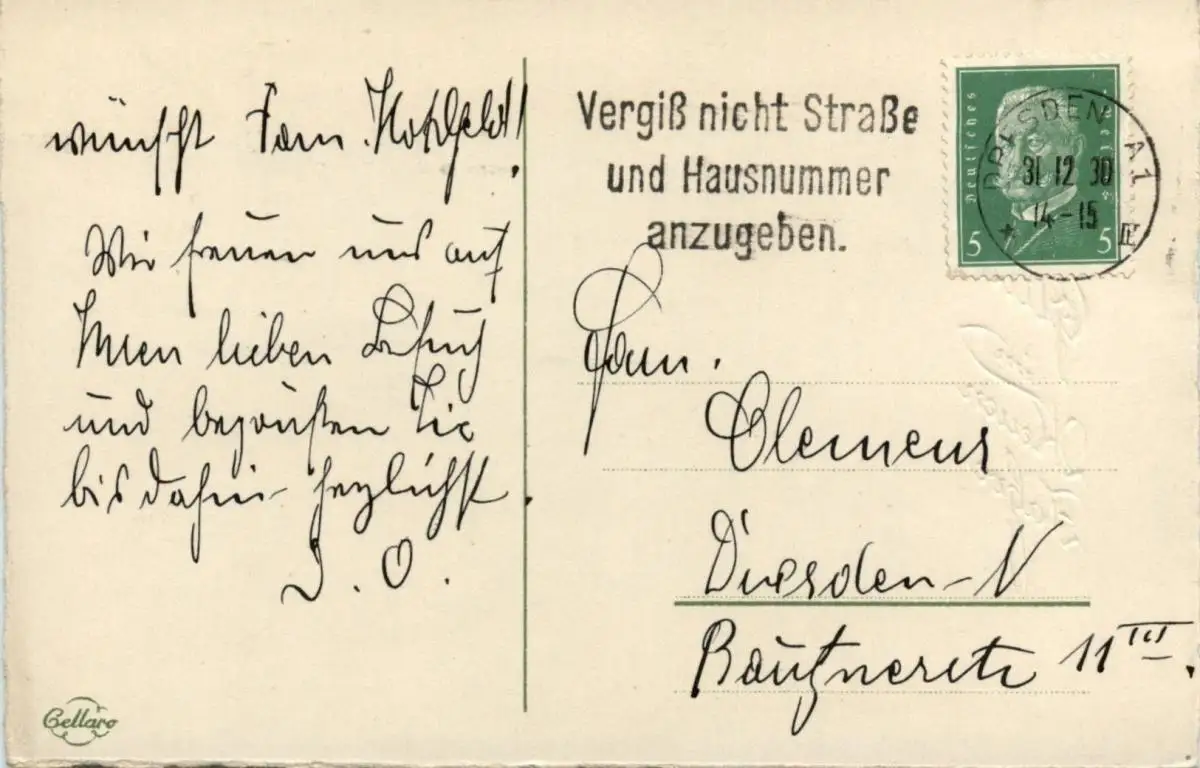 wünscht Fam. Hotzfeld!
Wir freuen uns auf
Ihren lieben Besuch
und begrüßen Sie
bis dahin herzlichst
D. O.
Cellaro
Vergiß nicht Straße
und Hausnummer
anzugeben.
Deutsches Reich
5 5
DRESDEN A1
31 12 30
14-15
Fam.
Clemens
Dresden-N
Bautznerstr 11 III.